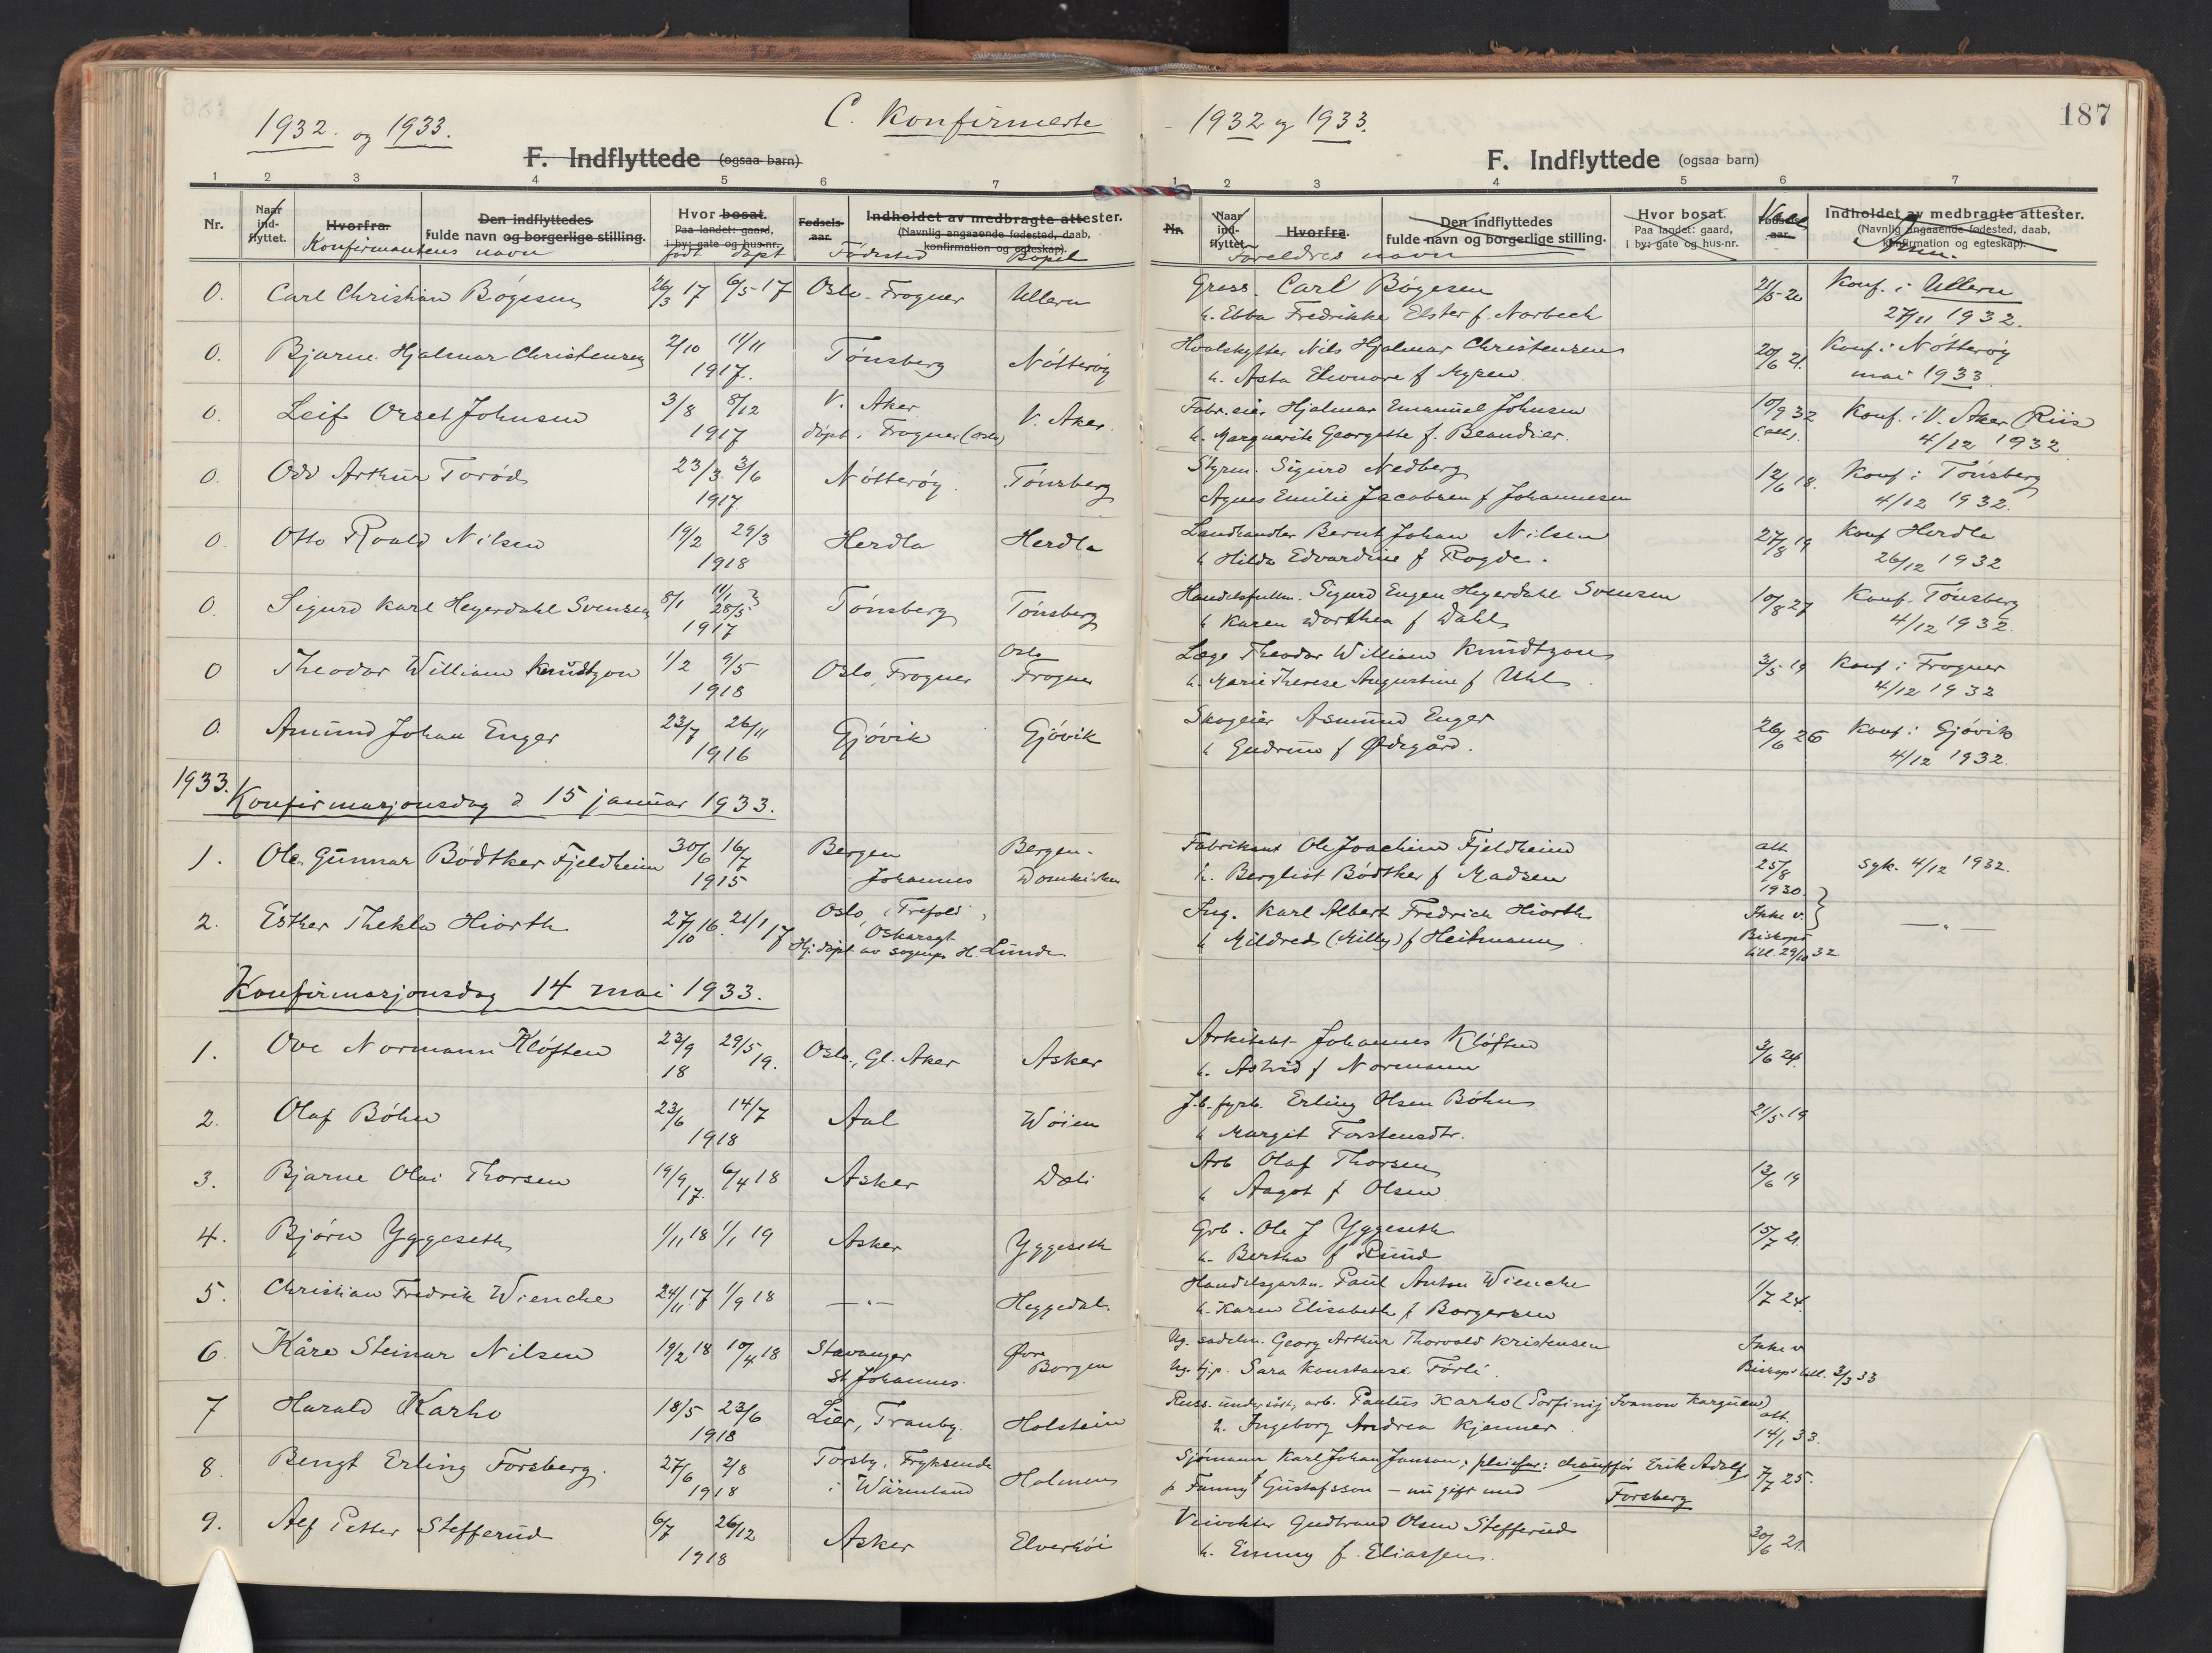 1932. og 1933.
C. Konfirmerte
F. Indflyttede (ogsaa barn)
1 2 3 4 5 6 7
Nr.
Naar ind-flyttet.
Hvorfra.
Den indflyttedes fulde navn og borgerlige stilling.
Hvor bosat. Paa landet: gaard, i by: gate og hus-nr.
Fødsels-aar.
Indholdet av medbragte attester. (Navnlig angaaende fødested, daab, konfirmation og egteskap).
Konfirmantens navn
født døpt
Fødested
Bopel
0. Carl Christian Bøgesen 26/3 17 6/5-17 Oslo-Frogner Ullern
0. Bjarne Hjalmar Christensen 2/10 11/11 1917. Tønsberg Nøtterøy
0. Leif Orset Johnsen 3/8 8/12 1917 V. Aker døpt i Frogner (Oslo) V. Aker.
0. Odd Arthur Torød 23/3 3/6 1917 Nøtterøy. Tønsberg
0. Otto Roald Nilsen 19/2 29/3 1918 Herdla Herdla
0. Sigurd Karl Heyerdahl Svensen 8/1 11/1 28/5 1917 Tønsberg Tønsberg
0 Theodor William Knudtzon 1/2 9/5 1918 Oslo, Frogner Oslo Frogner
0. Amund Johan Enger 23/7 26/11 1916 Gjøvik Gjøvik
1933. Konfirmasjonsdag d 15 januar 1933.
1. Ole Gunnar Bødtker Fjeldheim 30/6 16/7 1915 Bergen Johannes Bergen-Domkirken
2. Esther Thekla Hiorth 27/10 16. 21/1 17 Oslo, Trefold, Oskarsgt Hj. døpt av sognepr H. Lunde
Konfirmasjonsdag 14 mai 1933.
1. Ove Normann Kløften 23/9 18 29/5 19. Oslo, Gl. Aker Asker
2. Olaf Bøhn 23/6 14/7 1918 Aal Wøien
3. Bjarne Olai Thorsen 19/9 17. 6/4 18 Asker Dæli
4. Bjørn Yggeseth 1/11 18 1/1 19 Asker Yggeseth
5. Christian Fredrik Wiencke 24/11 17 1/9 18 —"— Heggedal.
6. Kåre Steinar Nilsen 19/2 18 10/4 18 Stavanger St Johannes. Øvre Borgen
7 Harald Karho 18/5 23/6 1918 Lier, Tranby. Holstein
8. Bengt Erling Forsberg. 27/6 2/8 1918 Torsby, Fryksende i Wärmland Holmen
9. Alf Petter Stefferud 6/7 26/12 1918 Asker Elverhøi
187
1932 og 1933.
F. Indflyttede (ogsaa barn)
1 2 3 4 5 6 7
Nr.
Naar ind-flyttet.
Hvorfra.
Den indflyttedes fulde navn og borgerlige stilling.
Hvor bosat. Paa landet: gaard, i by: gate og hus-nr.
Fødsels-aar.
Indholdet av medbragte attester. (Navnlig angaaende fødested, daab, konfirmation og egteskap).
Foreldres navn
Vacc
Anm.
Gross. Carl Bøgesen 21/5-20 Konf. i Ullern
h. Ebba Fredrikke Elster f. Norbech 27/11 1932.
Hvalskytter Nils Hjalmar Christensen 20/6 21. Konf. i Nøtterøy
h. Asta Eleonore f Myren. mai 1933
Fabr.eier Hjalmar Emanuel Johnsen 10/9 32 Konf. i V. Aker (Riis
h. Marguerite Georgette f. Beaudier. 4/12 1932
Styrm. Sigurd Nedberg 12/6 18. Konf i Tønsberg
Agnes Emilie Jacobsen f Johannesen 4/12 1932.
Landhandler Bernt Johan Nilsen 27/8 19 Konf Herdla
h Hilda Edvardine f Rogde. 26/12 1932
Handelsfullm. Sigurd Eugen Heyerdahl Svensen 10/8 27 Konf. Tønsberg
h Karen Dorthea f Dahl 4/12 1932.
Læge Theodor William Knudtzon 3/5 19 Konf i Frogner
h. Marie Therese Augustine f Uhl. 4/12 1932
Skogeier Asmund Enger 26/6 26 Konf. i Gjøvik
h Gudrun f Ødegård. 4/12 1932.
Fabrikant Ole Joachim Fjeldheim att. 25/8 1930 syk. 4/12 1932.
h. Bergliot Bødtker f Madsen
Ing. Karl Albert Fredrich Hiorth Ikke v. —"—
h Mildred (Milly) f Heitmann Biskops till. 29/10 32
Arkitekt Johannes Kløften 3/6 24.
h. Astrid f Normann
J.b. fyrb. Erling Olsen Bøhn 21/5-19
h Margit Torstensdtr.
Arb Olaf Thorsen 13/6 19
h Aagot f Olsen
Grb. Ole J Yggeseth 15/7 21
h. Bertha f Ruud
Handelsgartn. Paul Anton Wiencke 1/7 24
h. Karen Elisabeth f Borgersen
Ug. sadelm. Georg Arthur Thorvald Kristensen Ikke v
Ug. tj.p. Sara Konstanse Førli. Biskops till. 3/3 33
Russ. undersått, arb. Paulus Karho (Porfinij Ivanow Karguew) att. 14/1 33.
h. Ingeborg Andrea Kjenner
Sjømann Karl Johan Janson; pleiefar: chauffør Erik Adolf Forsberg 7/7 25.
p Fanny Gustafsson – nu gift med —
Veivokter Gudbrand Olsen Stefferud 30/6 21.
h. Emmy f. Eliassen.